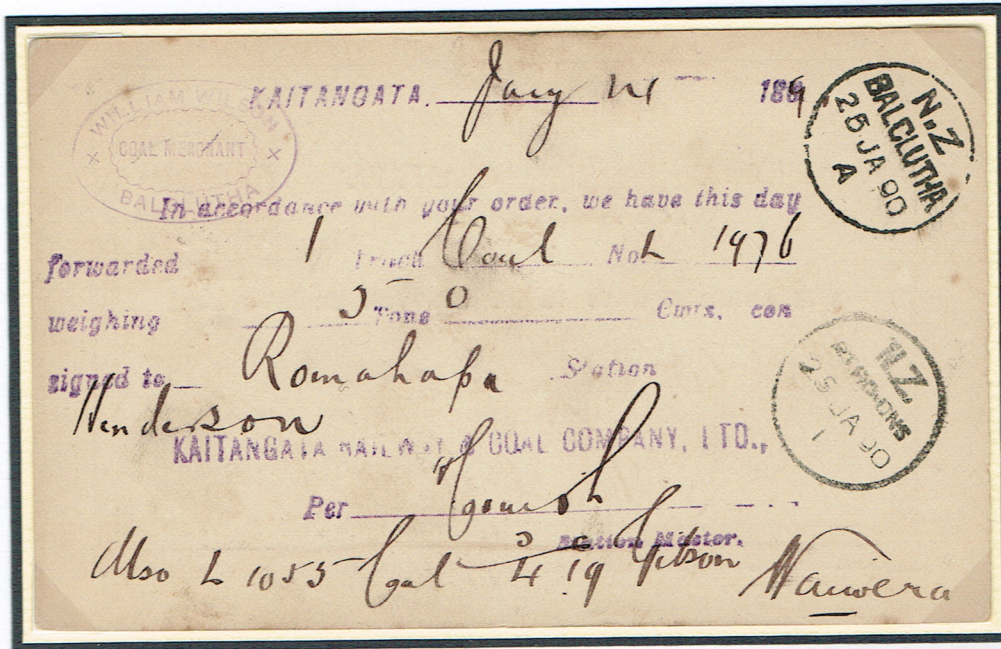 WILLIAM WILSON
COAL MERCHANT
BALCLUTHA
KAITANGATA. Jany 189
N.Z
BALCLUTHA
25 JA 90
A
In accordance with your order, we have this day
forwarded 1 Truck Coal No L 1976
weighing 5 Tons 0 Cwts, con
signed to Romahapa Station
Henderson
N.Z.
25 JA 90
1
KAITANGATA RAILWAY & COAL COMPANY, LTD.,
Per
Station Master.
Also L 1055 Coal 4 19 Gibson Waiwera